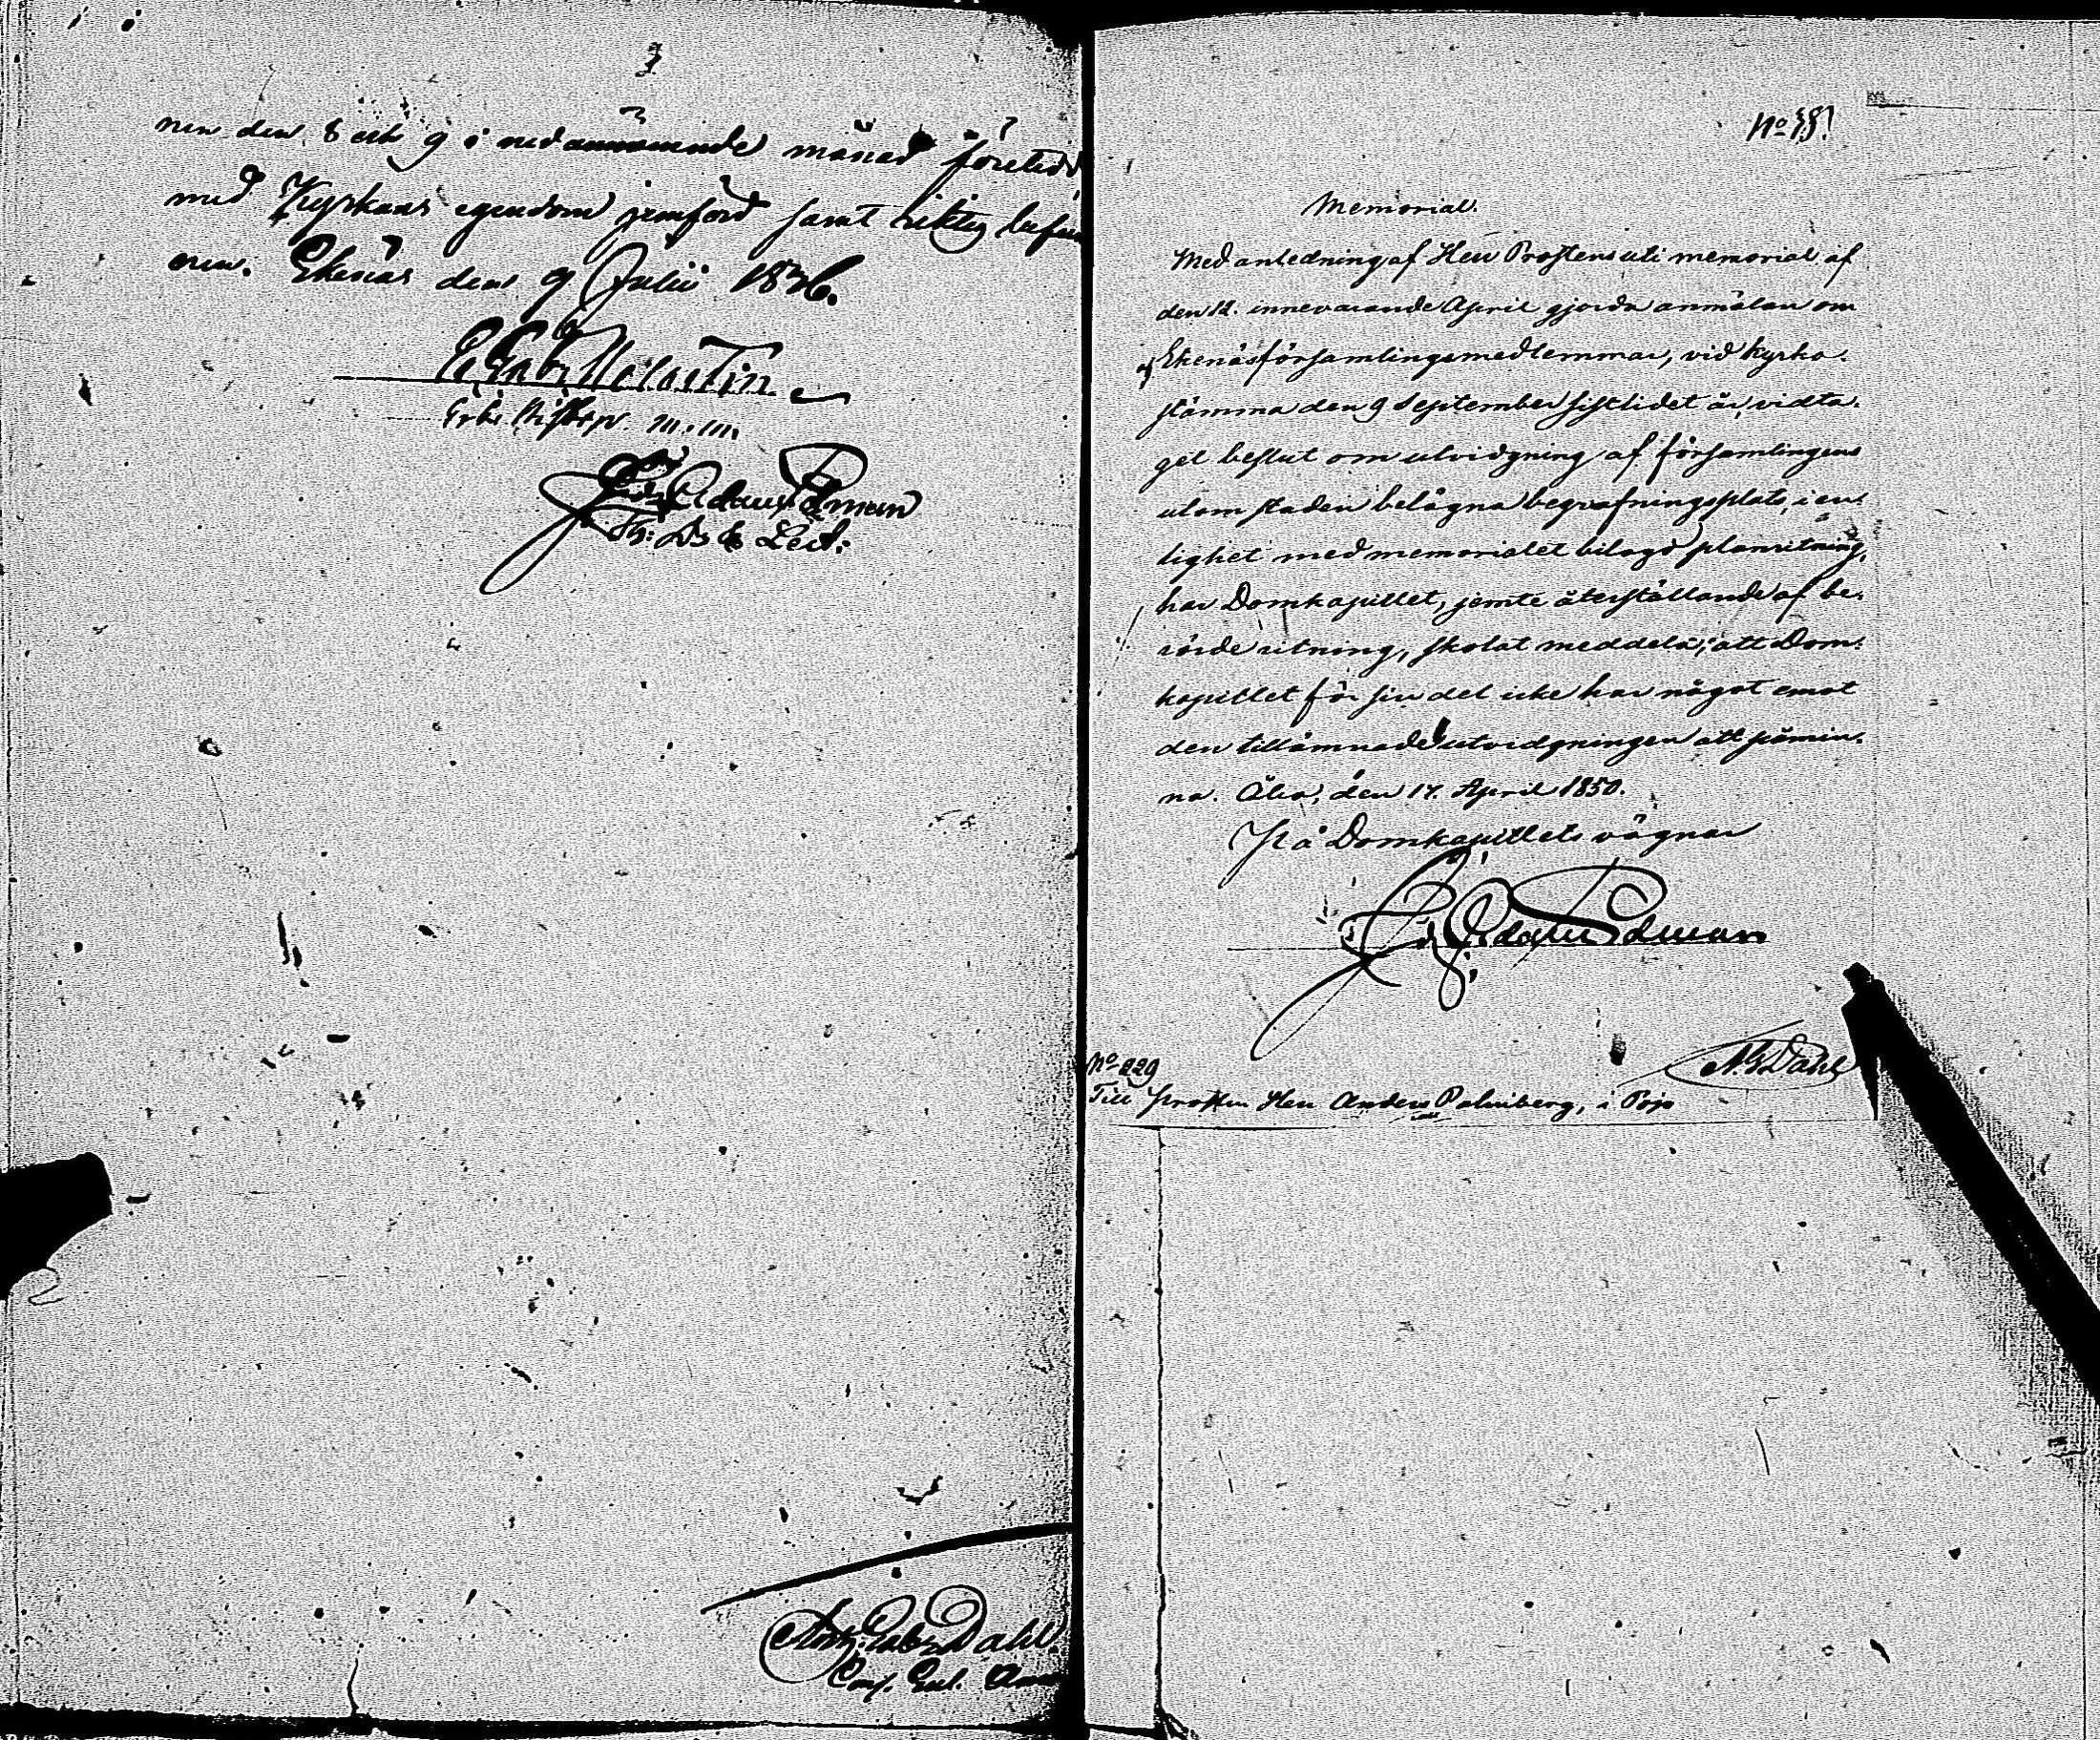 nen den 8 och 9 i nedannämnde månad företedd
med Kyrkans egendom jemförd samt riktig befun
nen. Ekenäs den 9 Julii 1836.
E. Gab. Melartin
Erke Biskop. m. m.
Joh. Adam Edman
Th: Dr & Lect:
And. Gabr. Dahl
Cons. Eccl.
No
Memorial.
Med anledning af Herr Prostens uti memorial af
den 12. innevarande April gjorda anmälan om
af Ekenäs församlingsmedlemmar, vid kyrko-
stämma den 9 September sistlidet år, vidta-
get beslut om utvidgning af församlingens
utom staden belägna begrafningsplats, i en-
lighet med memorialet bilagd planritning,
har Domkapitlet, jemte återställande af be-
rörde ritning, skolat meddela, att Dom-
kapitlet för sin del icke har något emot
den tillämnade utvidgningen att påmin-
na. Åbo, den 17. April 1850.
På Domkapitlets vägnar
Joh. Adam Edman
A. G. Dahl
No 229
Till Prosten Herr Anders Palmberg, i Pojo